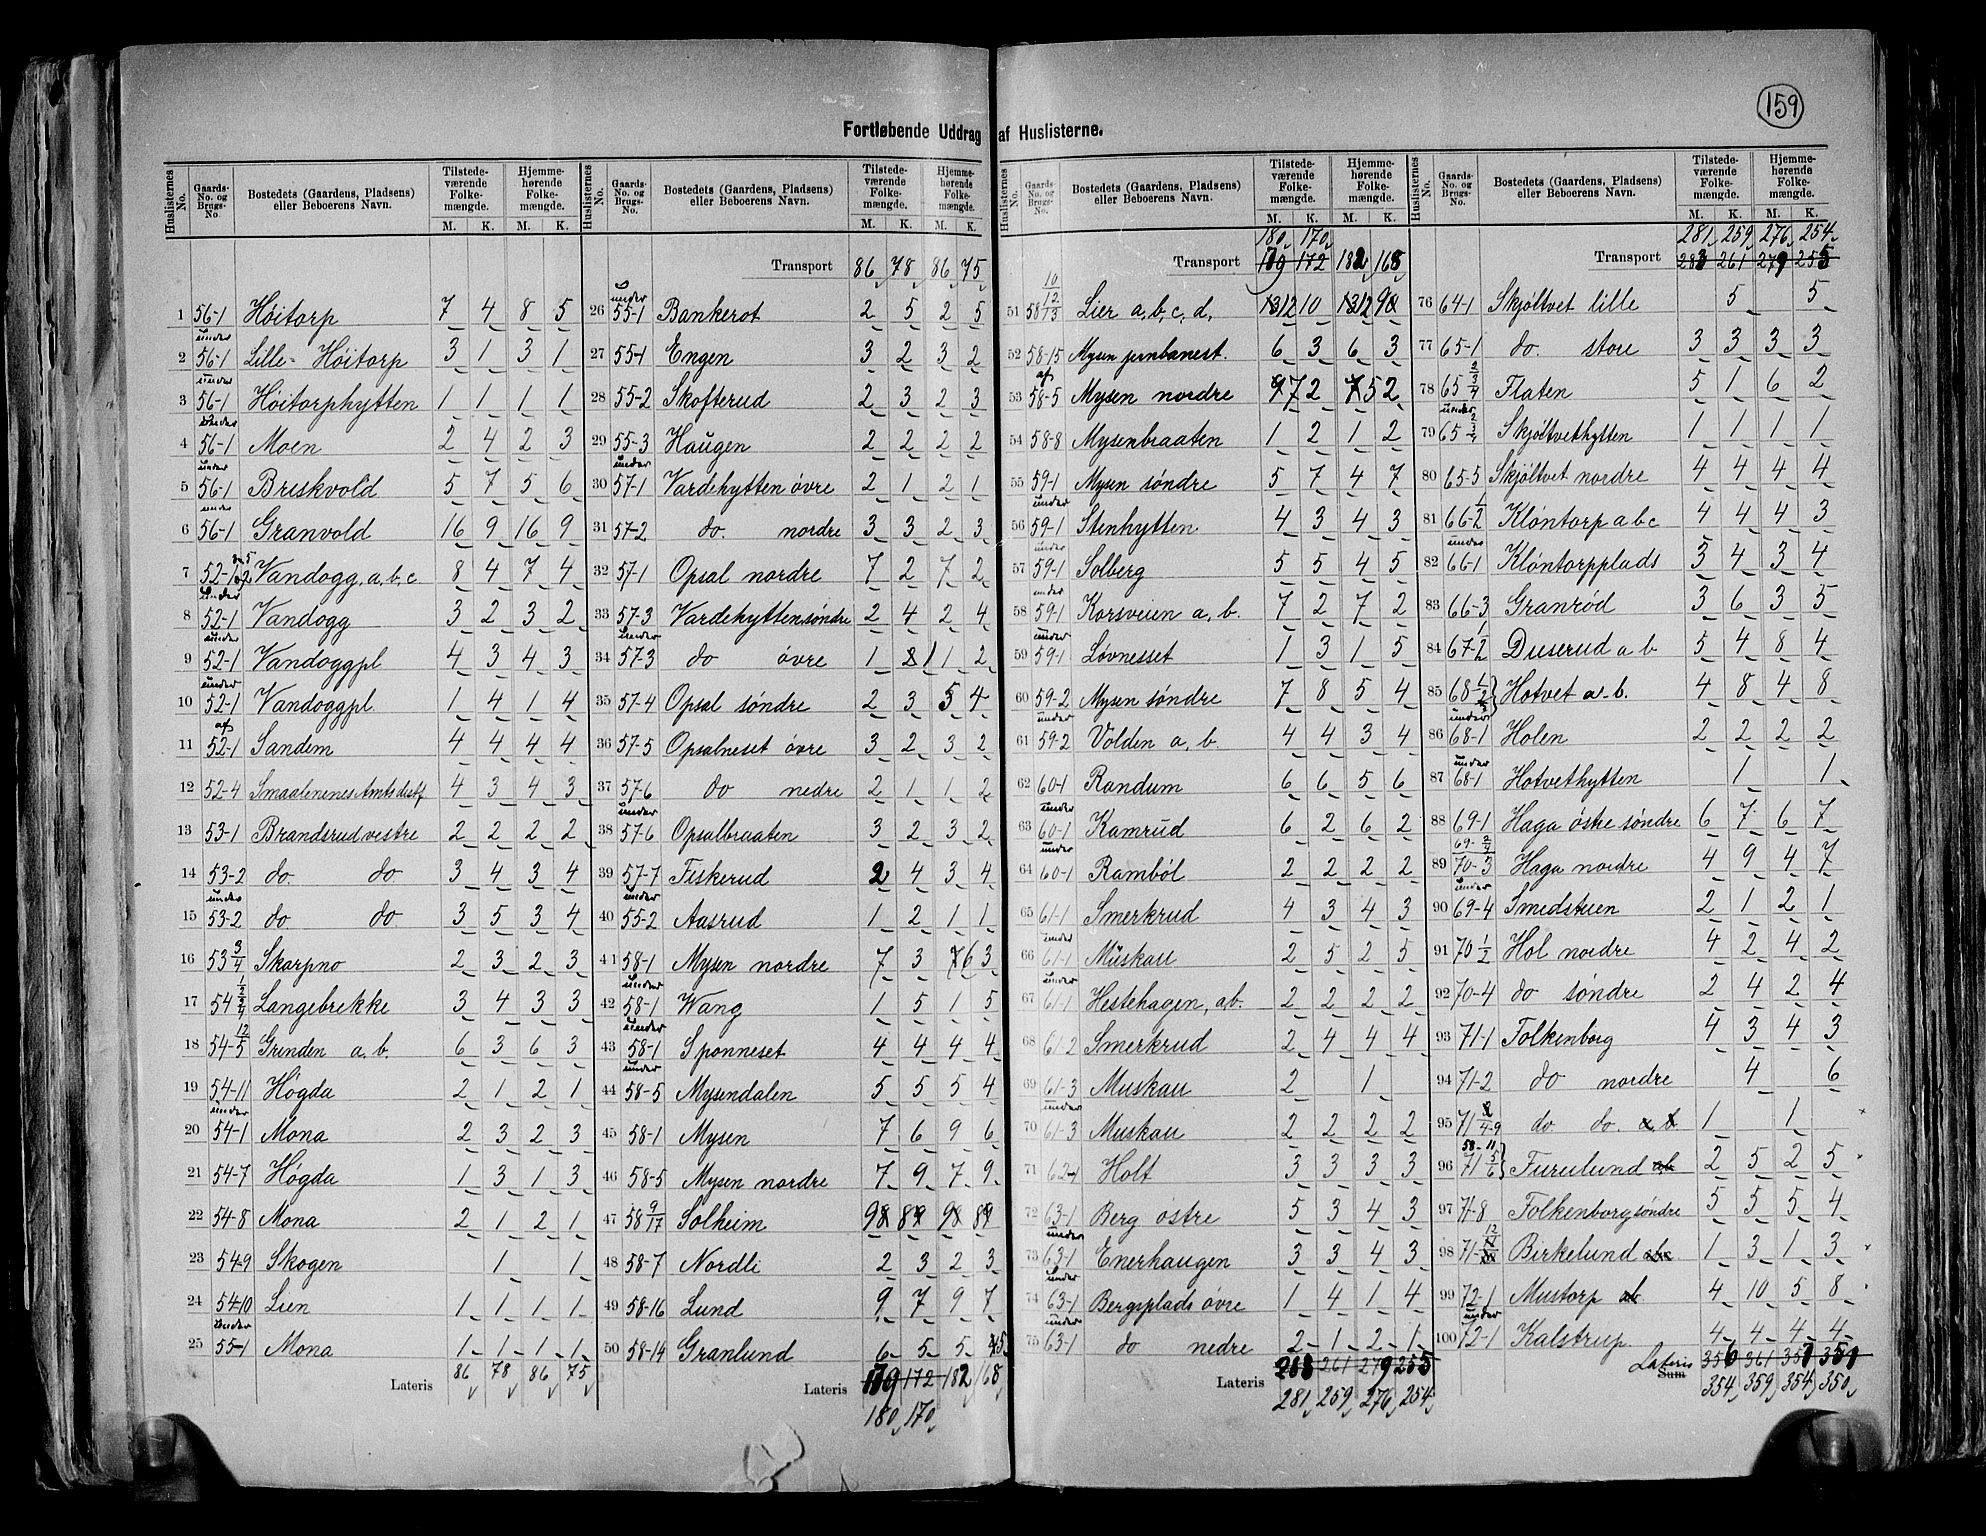 159
Fortløbende Uddrag af Huslisterne.
Huslisternes No. | Gaards-No. og Brugs-No. | Bostedets (Gaardens, Pladsens) eller Beboerens Navn. | Tilstedeværende Folkemængde. M. K. | Hjemmehørende Folkemængde. M. K.
1 56-1 Høitorp 7 4 8 5
2 under 56-1 Lille-Høitorp 3 1 3 1
3 under 56-1 Høitorphytten 1 1 1 1
4 under 56-1 Moen 2 4 2 3
5 under 56-1 Briskvold 5 7 5 6
6 under 56-1 Granvold 16 9 16 9
7 52-1 Vandogg, a, b, c 8 4 7 4
8 under 52-1 Vandogg 3 2 3 2
9 under 52-1 Vandoggpl 4 3 4 3
10 under 52-1 Vandoggpl 1 4 1 4
11 af 52-1 Sandem 4 4 4 4
12 52-4 Smaalenenes Amts 4 3 4 3
13 53-1 Brandsrud vestre 2 2 2 2
14 53-2 do. do 3 4 3 4
15 under 53-2 do do 3 5 3 4
16 53 3/4 Skarpno 2 3 2 3
17 54 Langebrekke 3 4 3 3
18 54-5 12 Grinden a, b. 6 3 6 3
19 54-11 Høgda 2 1 2 1
20 under 54-1 Mona 2 3 2 3
21 54-7 Høgda 1 3 1 3
22 54-8 Mona 2 1 2 1
23 54-9 Skogen 1 1
24 54-10 Lien 1 1 1 1
25 under 55-1 Mona 1 1 1 1
Lateris 86 78 86 75
Transport 86 78 86 75
26 under 55-1 Bankerot 2 5 2 5
27 55-1 Engen 3 2 3 2
28 55-2 Skofterud 2 3 2 3
29 55-3 Haugen 2 2 2 2
30 under 57-1 Vardehytten øvre 2 1 2 1
31 57-2 do. nordre 3 3 2 3
32 57-1 Opsal nordre 7 2 7 2
33 57-3 Vardehytten søndre 2 4 2 4
34 under 57-3 do øvre 1 1 1 2
35 57-4 Opsal søndre 2 3 5 4
36 57-5 Opsalneset øvre 3 2 3 2
37 57-6 do nedre 2 1 1 2
38 under 57-6 Opsalbraaten 3 2 3 2
39 57-7 Fiskerud 2 4 3 4
40 under 55-2 Aasrud 1 2 1 1
41 58-1 Mysen nordre 7 3 6 3
42 under 58-1 Wang 1 5 1 5
43 under 58-1 Sponneset 4 4 4 4
44 under 58-5 Mysendalen 5 5 5 4
45 58-1 Mysen 7 6 9 6
46 58-5 Mysen nordre 7 9 7 9
47 58 9/17 Solheim 9 8 9 8
48 58-7 Nordli 2 3 2 3
49 58-16 Lund 9 7 9 7
50 58-14 Granlund 6 5 5 5
Lateris 179 172 182 168
180 170
180 170
Transport 179 172 182 168
51 58 10 12/13 Lier a, b, c, d, 12 10 12 9
52 58-15 Mysen jernbanest. 6 3 6 3
53 af 58-5 Mysen nordre 7 2 5 2
54 58-8 Mysenbraaten 1 2 1 2
55 59-1 Mysen søndre 5 7 4 7
56 under 59-1 Stenhytten 4 3 4 3
57 under 59-1 Solberg 5 5 4 5
58 under 59-1 Korsveien a, b. 7 2 7 2
59 under 59-1 Løvnesset 1 3 1 5
60 59-2 Mysen søndre 7 8 5 4
61 under 59-2 Volden a, b. 4 4 3 4
62 60-1 Randum 6 6 5 6
63 under 60-1 Kamrud 6 2 6 2
64 under 60-1 Rambøl 2 2 2 2
65 61-1 Smerkrud 4 3 4 3
66 under 61-1 Muskau 2 5 2 5
67 under 61-1 Hestehagen, ab. 2 2 2 2
68 61-2 Smerkrud 2 4 4 4
69 61-3 Muskau 2 1
70 under 61-3 Muskau 2 2 2 2
71 62-1 Holt 3 3 3 3
72 63-1 Berg østre 5 3 4 3
73 under 63-1 Enerhaugen 3 3 4 3
74 under 63-1 Bergsplads øvre 1 4 1 4
75 under 63-1 do nedre 2 1 2 1
Lateris 283 261 279 255
281 259 276 254
281 259 276 254
Transport 283 261 279 255
76 64-1 Skjøltvet lille 5 5
77 65-1 do. store 3 3 3 3
78 65 2 3/4 Flaten 5 1 6 2
79 under 65 2 3/4 Skjøltvethytten 1 1 1 1
80 65-5 Skjøltvet nordre 4 4 4 4
81 66-1/2 Kløntorp a b c 4 4 4 3
82 under 66-1 Kløntorpplads 3 4 3 4
83 66-3 Granrød 3 6 3 5
84 67-1/2 Duserud a b 5 4 8 4
85 68-1/2 Hotvet a-b. 4 8 4 8
86 under 68-1 Holen 2 2 2 2
87 under 68-1 Hotvethytten 1 1
88 69-1 Haga østre søndre 6 7 6 7
89 69-2/3 70-3 Haga nordre 4 9 4 7
90 under 69-4 Smedstuen 2 1 2 1
91 70 1/2 Hol nordre 4 2 4 2
92 70-4 do søndre 2 4 2 4
93 71-1 Folkenborg 4 3 4 3
94 71-2 do nordre 4 6
95 71 do do. a, b. 1 1
96 58-11 71 5/6 Furulund ab 2 5 2 5
97 71-8 Folkenborg søndre 5 5 5 4
98 71-12 Birkelund abc 1 3 1 3
99 72-1 Mustorp ab 4 10 5 8
100 under 72-1 Kalstrup. 4 4 4 4
Lateris Sum 356 361 357 351
354 359 354 350